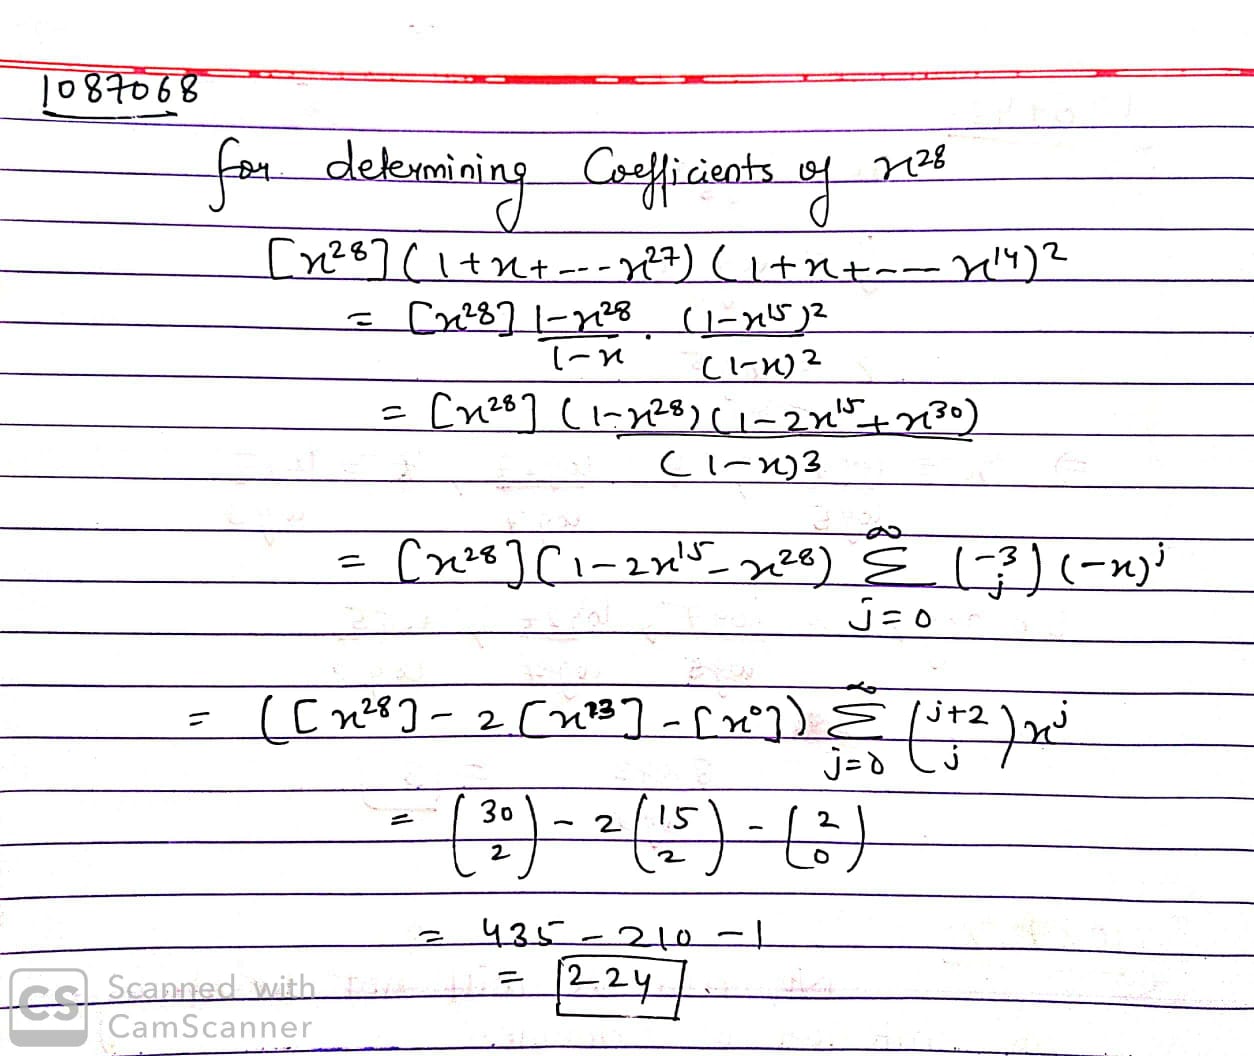 1087068
for determining Coefficients of x²⁸
[x²⁸] (1+x+---x²⁷) (1+x+--- x¹⁴)²
= [x²⁸] (1-x²⁸)/(1-x) . (1-x¹⁵)²/(1-x)²
= [x²⁸] (1-x²⁸)(1-2x¹⁵+x³⁰)/(1-x)³
= [x²⁸] (1-2x¹⁵-x²⁸) ∑_{j=0}^{∞} (-3 choose j) (-x)ʲ
= ([x²⁸] - 2[x¹³] - [x⁰]) ∑_{j=0}^{∞} (j+2 choose j) xʲ
= (30 choose 2) - 2 (15 choose 2) - (2 choose 0)
= 435 - 210 - 1
= 224.
CS Scanned with
CamScanner